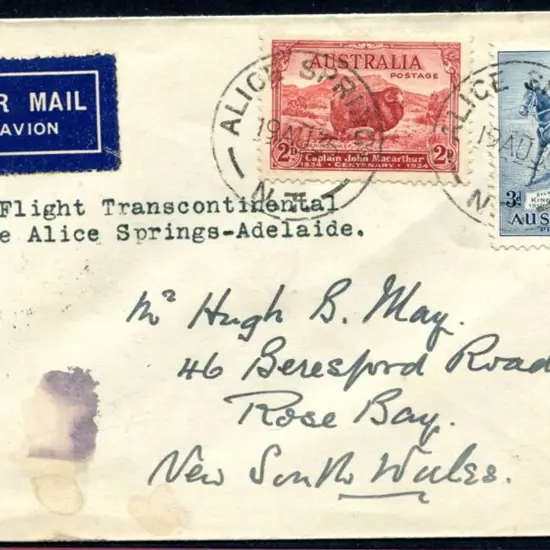 R MAIL
AVION
AUSTRALIA
POSTAGE
2D
Captain John Macarthur
1834 - CENTENARY - 1934
2D
ALICE SPRINGS
19 AU
N.T.
ALICE S
19 AU
N
3d
KING
AUS
Flight Transcontinental
e Alice Springs-Adelaide.
Mr Hugh B. May.
46 Beresford Road
Rose Bay.
New South Wales.